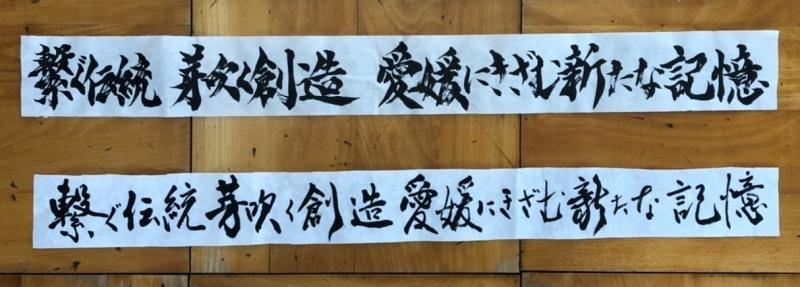 繋ぐ伝統 芽吹く創造 愛媛にきざむ新たな記憶
繋ぐ伝統 芽吹く創造 愛媛にきざむ新たな記憶